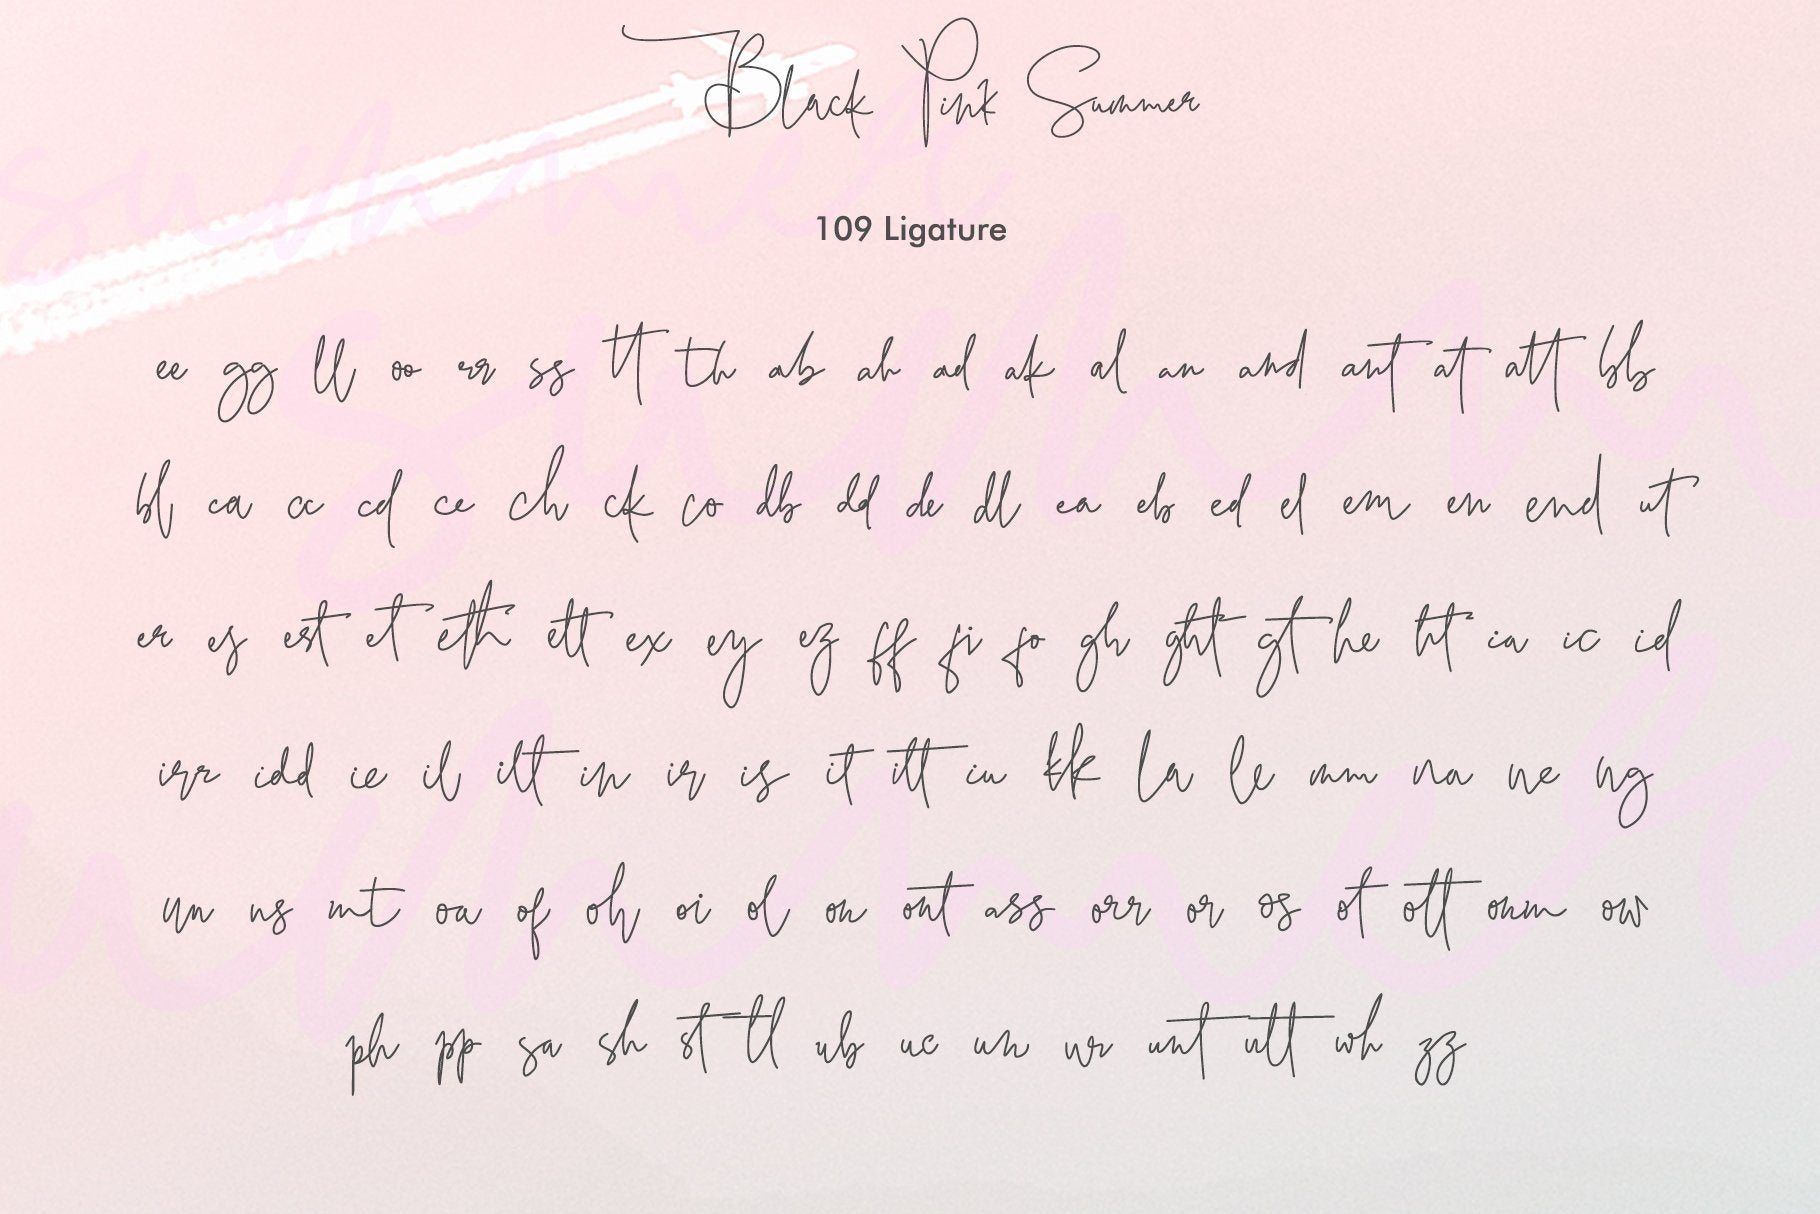 Black Pink Summer
109 Ligature
ee gg ll oo rr ss tt th ab ah ad ak al an and ant at att bb
bl ca cc cd ce ch ck co db dd de dl ea eb ed el em en end
er es est et eth ett ex ey ez ff fi fo gh ght gt he ht ia ic id
irr idd ie il ilt in ir is it itt iu kk la le mm na ne ng
nn ns nt oa of oh oi ol on ont ass orr or os ot ott ow
ph pp sa sh st tl ub uc un ur unt utt wh zz
summer
summ
ummer